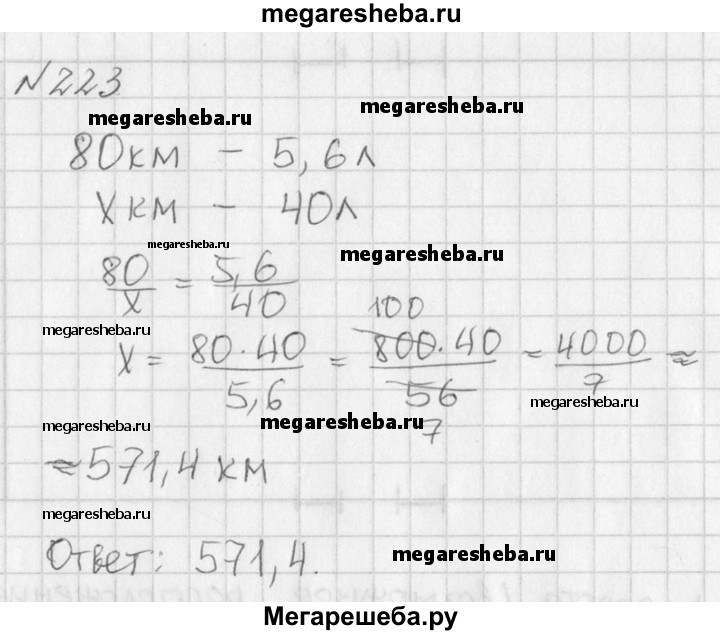 megaresheba.ru
№223
megaresheba.ru
megaresheba.ru
80км – 5,6л
Xкм – 40л
megaresheba.ru
megaresheba.ru
80/X = 5,6/40
megaresheba.ru
megaresheba.ru
100
X = 80·40/5,6 = 800·40/56 = 4000/7 ≈
7
megaresheba.ru
megaresheba.ru
megaresheba.ru
≈571,4 км
megaresheba.ru
Ответ: 571,4.
megaresheba.ru
Мегарешеба.ру